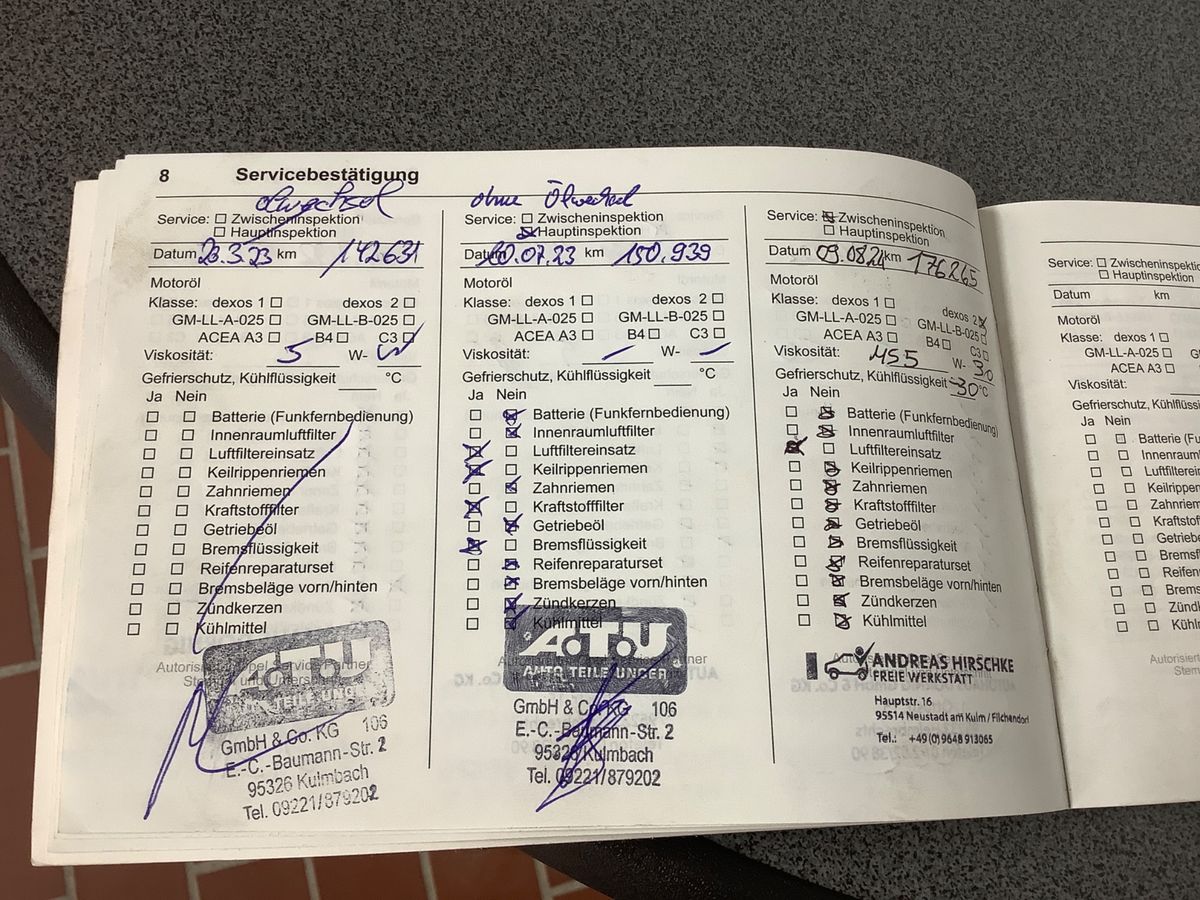 8 Servicebestätigung
Ölwechsel
Service: Zwischeninspektion
Hauptinspektion
Datum 23.3.23 km 142631
Motoröl
Klasse: dexos 1 dexos 2
GM-LL-A-025 GM-LL-B-025
ACEA A3 B4 C3
Viskosität: 5 W-
Gefrierschutz, Kühlflüssigkeit °C
Ja Nein
Batterie (Funkfernbedienung)
Innenraumluftfilter
Luftfiltereinsatz
Keilrippenriemen
Zahnriemen
Kraftstofffilter
Getriebeöl
Bremsflüssigkeit
Reifenreparaturset
Bremsbeläge vorn/hinten
Zündkerzen
Kühlmittel
A.T.U
AUTO TEILE UNGER
GmbH & Co. KG 106
E.-C.-Baumann-Str. 2
95326 Kulmbach
Tel. 09221/879202
ohne Ölwechsel
Service: Zwischeninspektion
Hauptinspektion
Datum .07.23 km 150.939
Motoröl
Klasse: dexos 1 dexos 2
GM-LL-A-025 GM-LL-B-025
ACEA A3 B4 C3
Viskosität: W-
Gefrierschutz, Kühlflüssigkeit °C
Ja Nein
Batterie (Funkfernbedienung)
Innenraumluftfilter
Luftfiltereinsatz
Keilrippenriemen
Zahnriemen
Kraftstofffilter
Getriebeöl
Bremsflüssigkeit
Reifenreparaturset
Bremsbeläge vorn/hinten
Zündkerzen
Kühlmittel
A.T.U
AUTO TEILE UNGER
GmbH & Co. KG 106
E.-C.-Baumann-Str. 2
95326 Kulmbach
Tel. 09221/879202
Service: Zwischeninspektion
Hauptinspektion
Datum 09.08.24 km 176265
Motoröl
Klasse: dexos 1 dexos 2
GM-LL-A-025 GM-LL-B-025
ACEA A3 B4 C3
Viskosität: W-30
Gefrierschutz, Kühlflüssigkeit -30 °C
Ja Nein
Batterie (Funkfernbedienung)
Innenraumluftfilter
Luftfiltereinsatz
Keilrippenriemen
Zahnriemen
Kraftstofffilter
Getriebeöl
Bremsflüssigkeit
Reifenreparaturset
Bremsbeläge vorn/hinten
Zündkerzen
Kühlmittel
ANDREAS HIRSCHKE
FREIE WERKSTATT
Hauptstr. 16
95514 Neustadt am Kulm / Filchendorf
Tel.: +49 (0) 9648 913065
Service: Zwischeninspektion
Hauptinspektion
Datum km
Motoröl
Klasse: dexos 1
GM-LL-A-025
ACEA A3
Viskosität:
Gefrierschutz, Kühlflüssig
Ja Nein
Batterie (Fu
Innenraum
Luftfilterein
Keilrippen
Zahnriem
Kraftsto
Getrieb
Bremsf
Reifen
Brems
Zünd
Kühl
Autorisiert
Stem